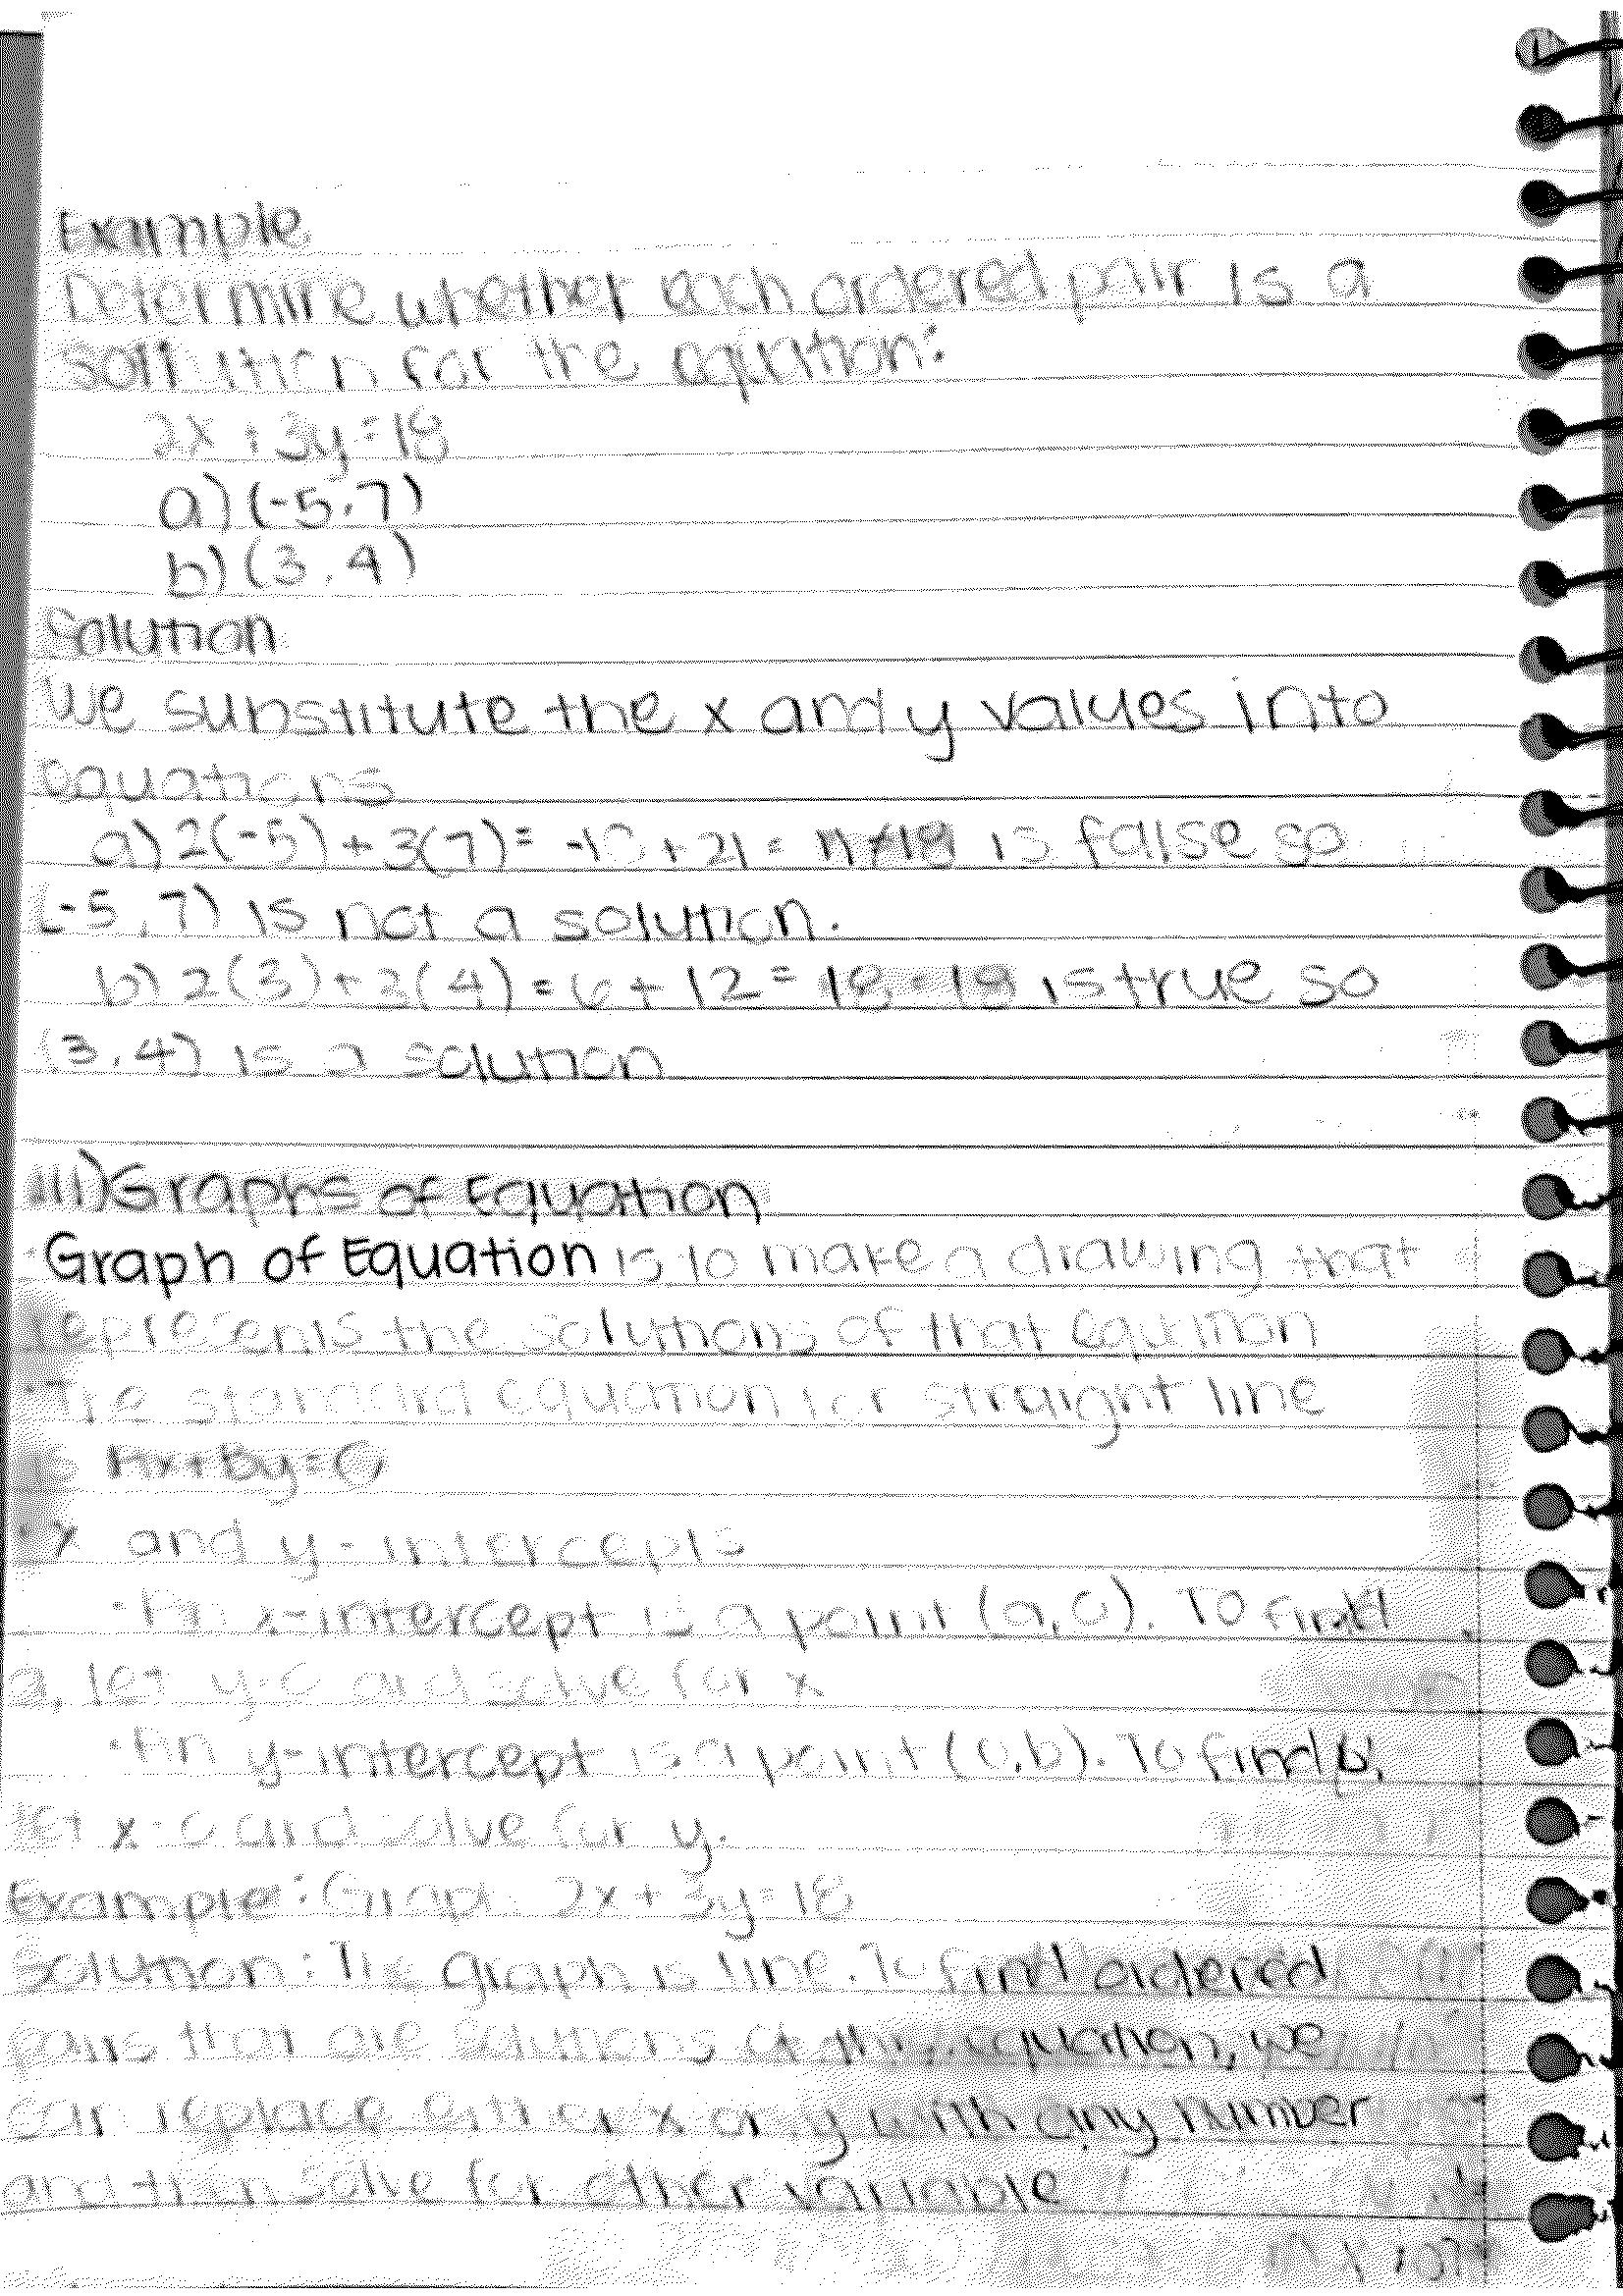 Example
Determine whether each ordered pair is a
solution for the equation:
2x+3y=18
a)(-5,7)
b)(3,4)
Solution
We substitute the x and y values into
equations
a) 2(-5)+3(7)= -10+21= 11≠18 is false so
(-5,7) is not a solution.
b) 2(3)+3(4)=6+12= 18=18 is true so
(3,4) is a solution
III) Graphs of Equation
· Graph of Equation is to make a drawing that
represents the solutions of that equation
· The standard equation for straight line
is Ax+By=C
· x and y-intercepts
· An x-intercept is a point (a,0). To find
a, let y=0 and solve for x
· An y-intercept is a point (0,b). To find b,
let x=0 and solve for y.
Example: Graph 2x+3y=18
Solution: The graph is line. To find ordered
pairs that are solutions of this equation, we
can replace either x or y with any number
and then solve for other variable